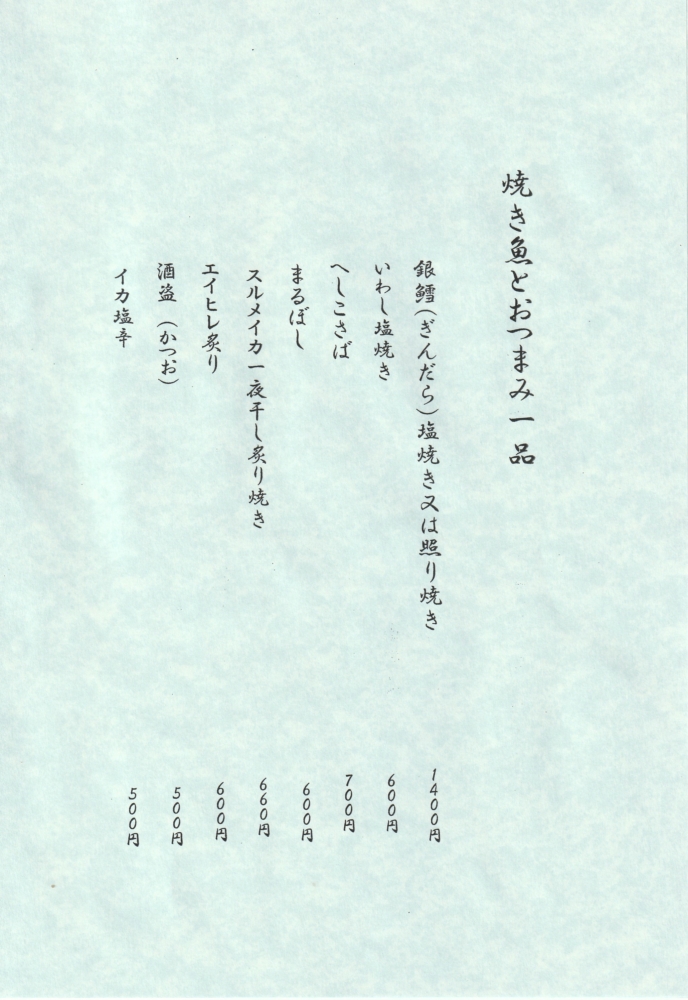 焼き魚とおつまみ一品
銀鱈(ぎんだら)塩焼き又は照り焼き 1400円
いわし塩焼き 600円
へしこさば 700円
まるぼし 600円
スルメイカ一夜干し炙り焼き 660円
エイヒレ炙り 600円
酒盗 (かつお) 500円
イカ塩辛 500円